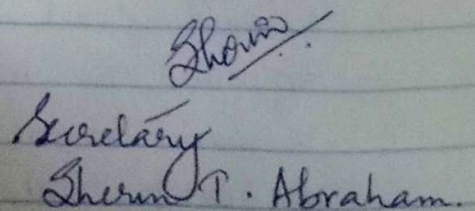 Sherin
Secretary
Sherin T. Abraham.